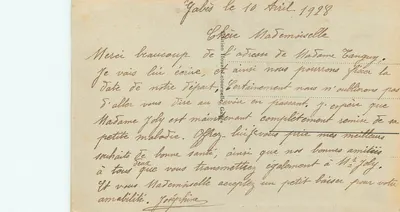 Gabès le 10 Avril 1928
Chère Mademoiselle
Merci beaucoup de l'adresse de Madame Tanguy.
Je vais lui écrire, et ainsi nous pourrons fixer la
date de notre départ. Certainement nous n'oublierons pas
d'aller vous dire au revoir en passant, j'espère que
Madame Joly est maintenant complètement remise de sa
petite maladie. Offrez lui je vous prie mes meilleurs
souhaits de bonne santé, ainsi que nos bonnes amitiés
à tous deux que vous transmettrez également à Mr Joly.
Et vous Mademoiselle acceptez un petit baiser pour votre
amabilité. Joséphine